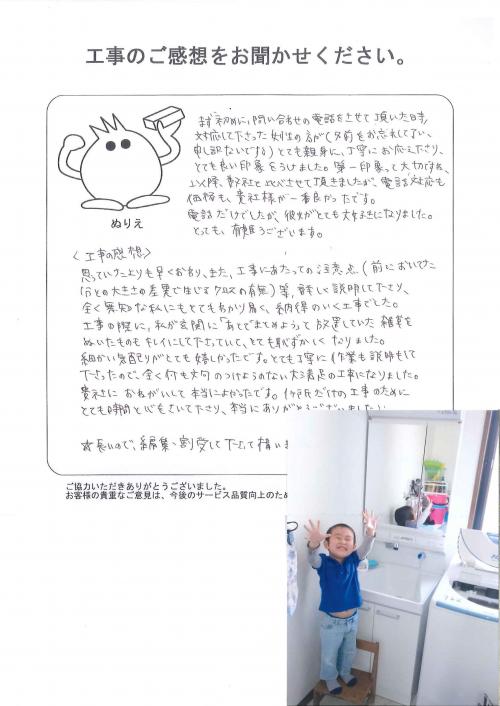 工事のご感想をお聞かせください。
まず初めに、問い合わせの電話をさせて頂いた時、
対応して下さった女性の方が(名前をお忘れしてしまい、
申し訳ないです)とても親身に、丁寧にお応え下さり、
とても良い印象をうけました。第一印象って大切ですね。
数社と比べさせて頂きましたが、電話対応も
価格も、貴社様が一番良かったです。
電話だけでしたが、彼女がとても大好きになりました。
とっても、有難うございます。
ぬりえ
〈工事の感想〉
思っていたよりも早くおわり、また、工事にあたっての注意点(前においてた
台との大きさの差異で生じるクロスの有無)等、詳しく説明して下さり、
全く無知な私にもとてもわかり易く、納得のいく工事でした。
工事の際に、私が玄関に「あとでまとめよう」って放置していた雑草を
ぬいたものもキレイにして下さっていて、とても恥ずかしくなりました。
細かい気配りがとても嬉しかったです。とても丁寧に作業も説明もして
下さったので、全く何も文句のつけようのない大満足の工事になりました。
貴社に おねがいして 本当によかったです。1ヶ所だけの工事のために
とても時間と心をさいて下さり、本当にありがとうございました
☆長いので、編集・割愛して下さって構いま
ご協力いただきありがとうございました。
お客様の貴重なご意見は、今後のサービス品質向上のため